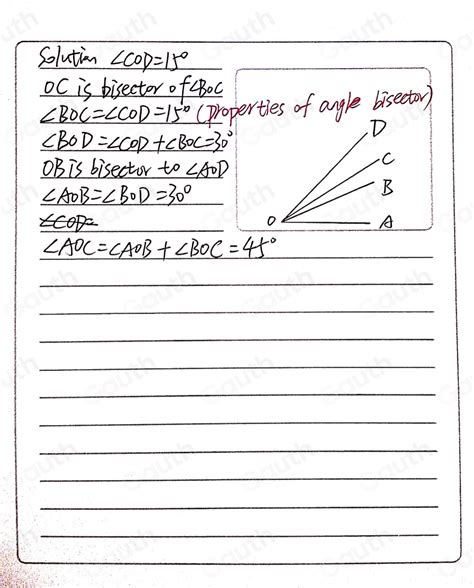 Solution ∠COD=15°
OC is bisector of ∠BOC
∠BOC=∠COD=15° (properties of angle bisector)
∠BOD=∠COD+∠BOC=30°
OB is bisector to ∠AOD
∠AOB=∠BOD=30°
∠COD=
∠AOC=∠AOB+∠BOC=45°
D
C
B
O
A
Gauth